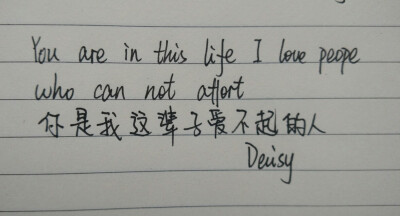 You are in this life I love peope
who can not affort
你是我这辈子爱不起的人
Deisy